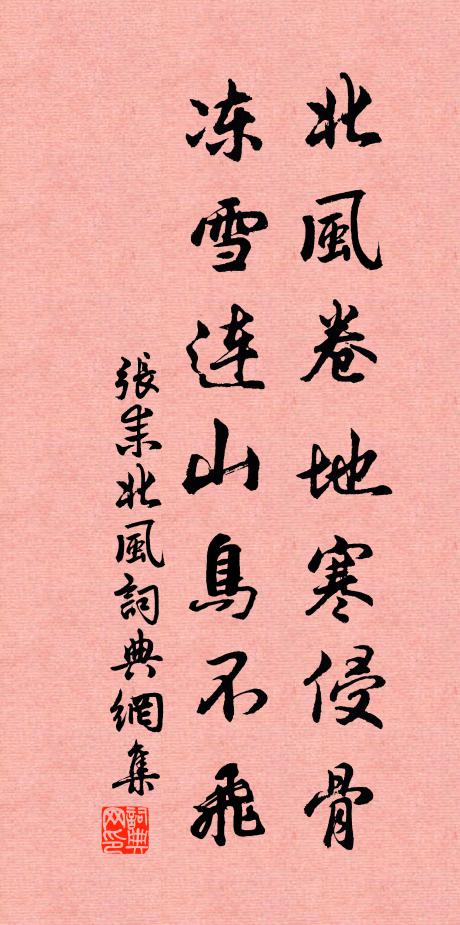 北風卷地寒侵骨
冻雪連山鳥不飛
張耒北風詞典網集
詞典网印